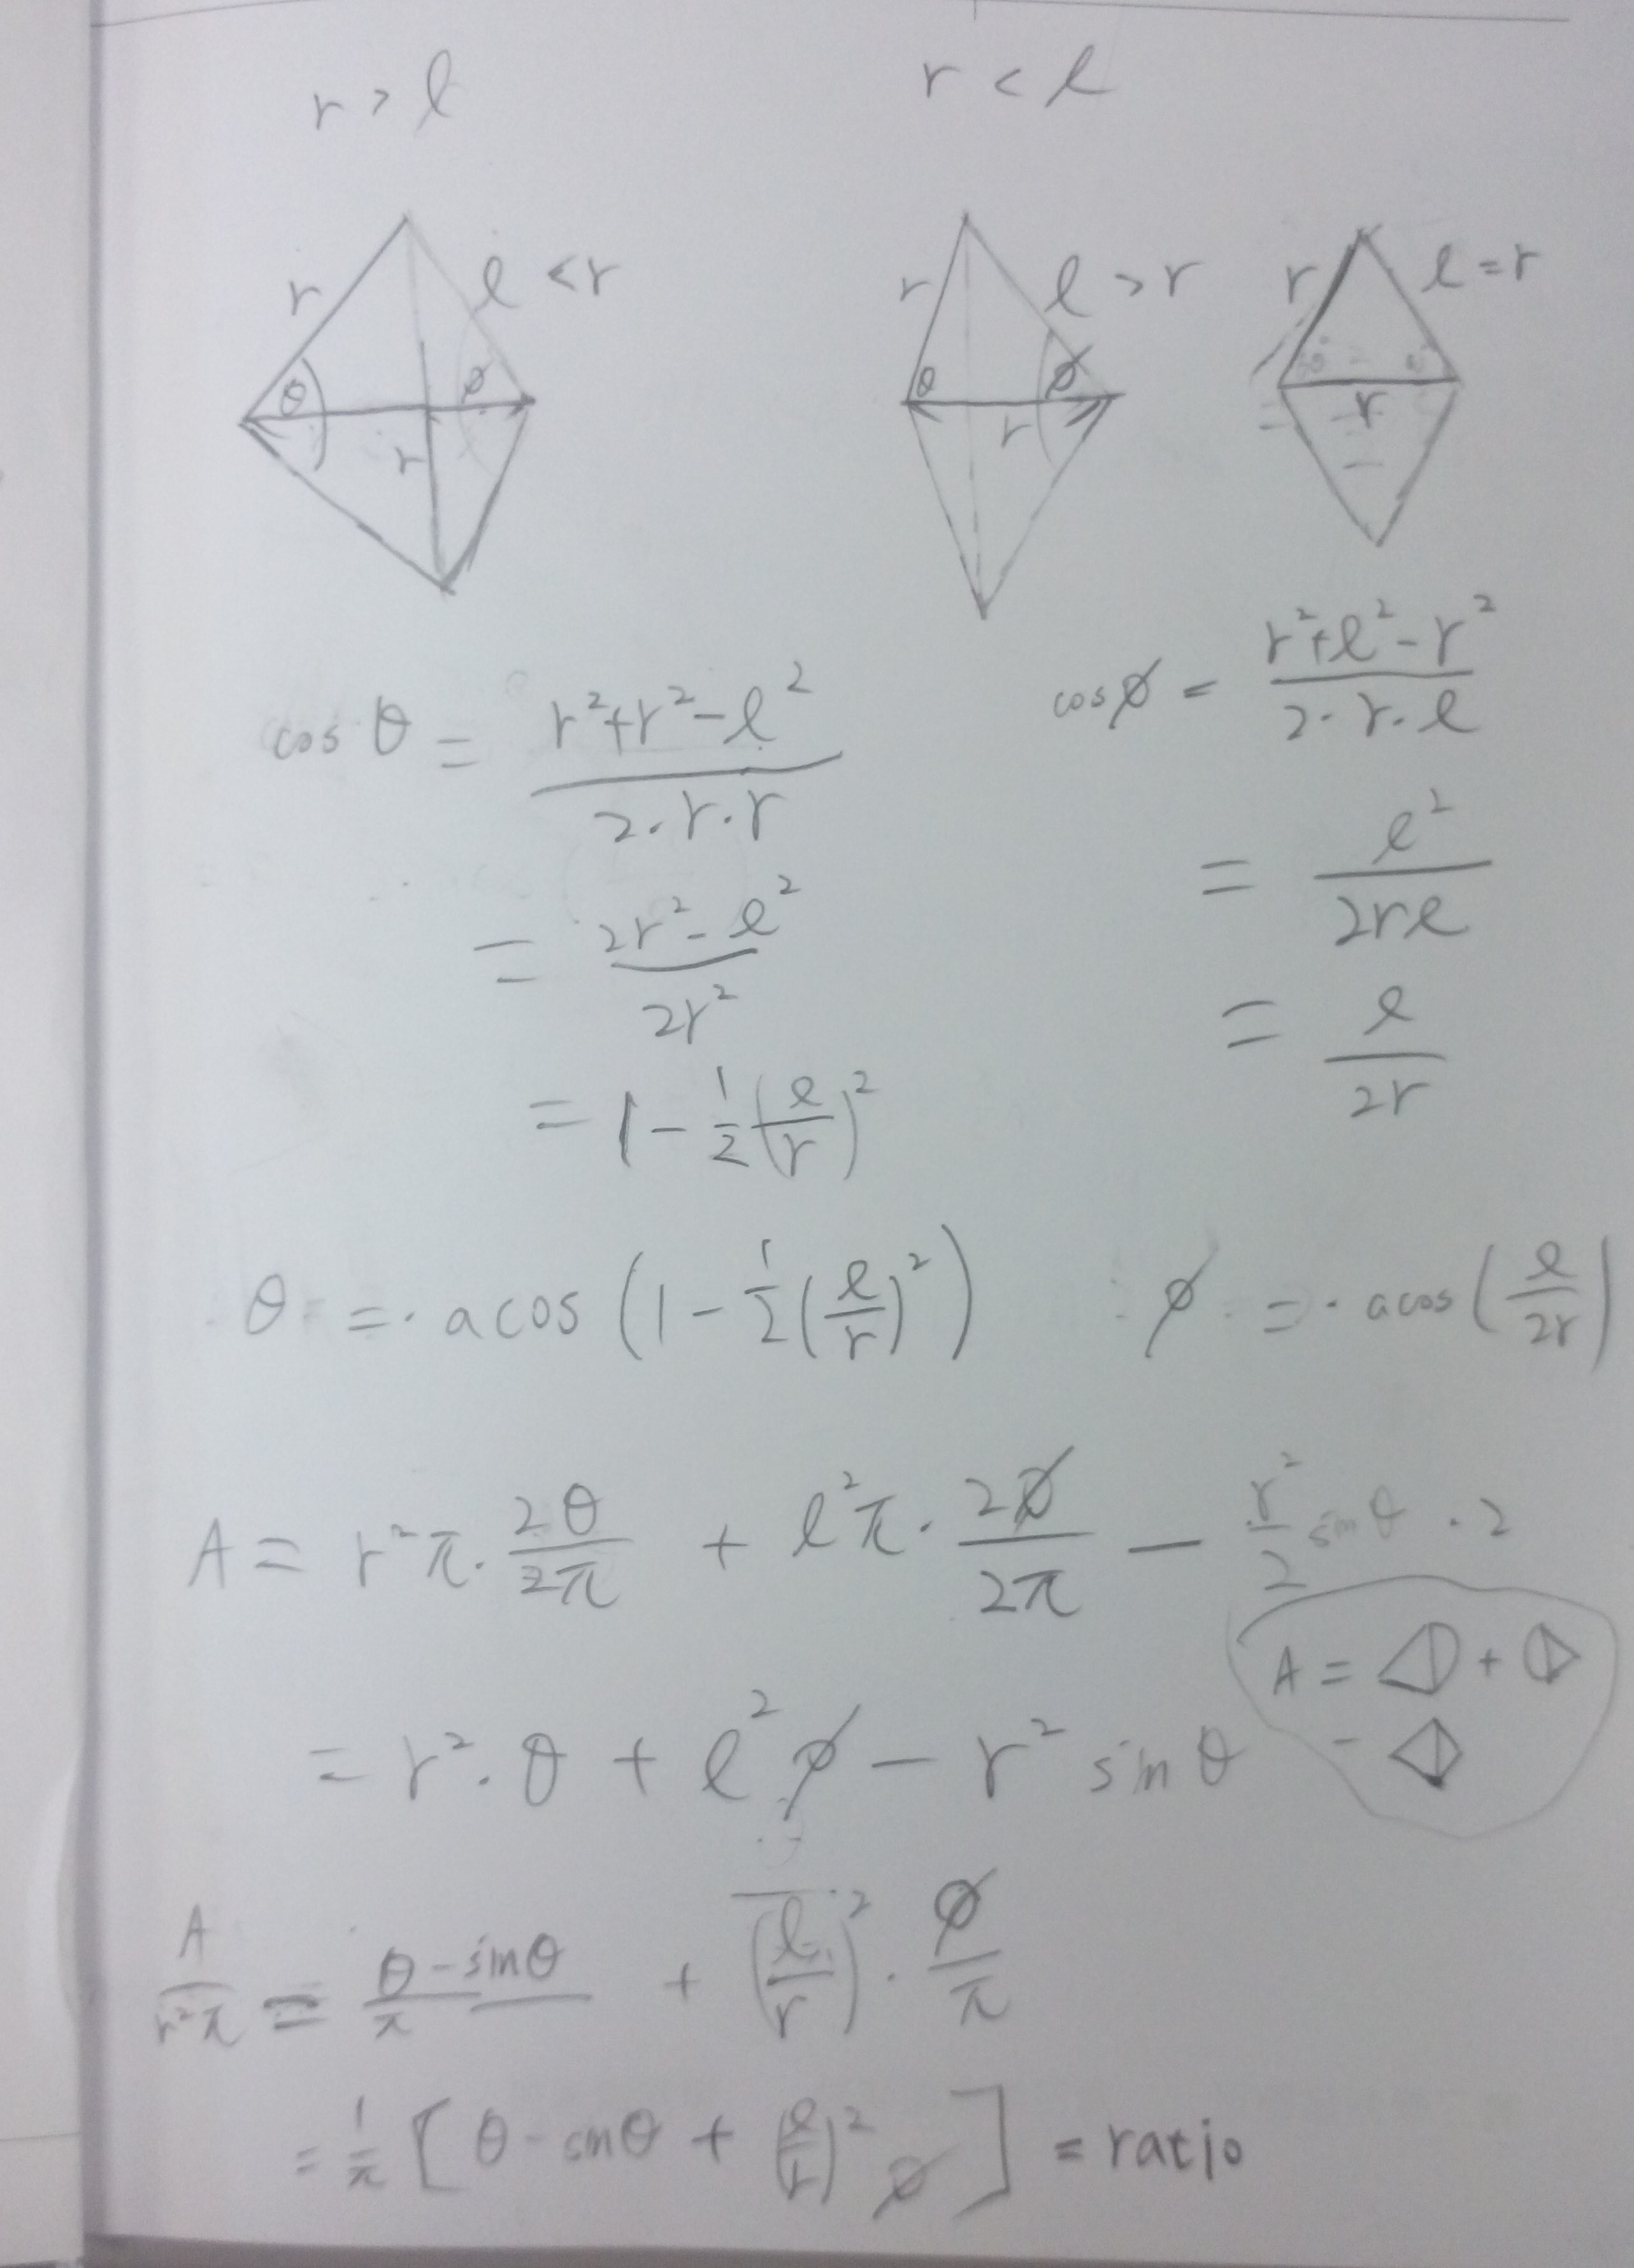 r > ℓ
r < ℓ
r ℓ < r
θ φ
r
r ℓ > r
θ φ
r
r ℓ = r
r
cos θ = (r²+r²-ℓ²)/(2·r·r)
= (2r²-ℓ²)/(2r²)
= 1 - 1/2 (ℓ/r)²
cos φ = (r²+ℓ²-r²)/(2·r·ℓ)
= ℓ²/(2rℓ)
= ℓ/(2r)
θ = · acos (1 - 1/2 (ℓ/r)²)
φ = · acos (ℓ/2r)
A = r²π · 2θ/2π + ℓ²π · 2φ/2π - r²/2 sinθ · 2
A = + 
-
= r² · θ + ℓ²φ - r² sin θ
A/(r²π) = (θ - sinθ)/π + (ℓ/r)² · φ/π
= 1/π [ θ - sinθ + (ℓ/r)² φ ] = ratio